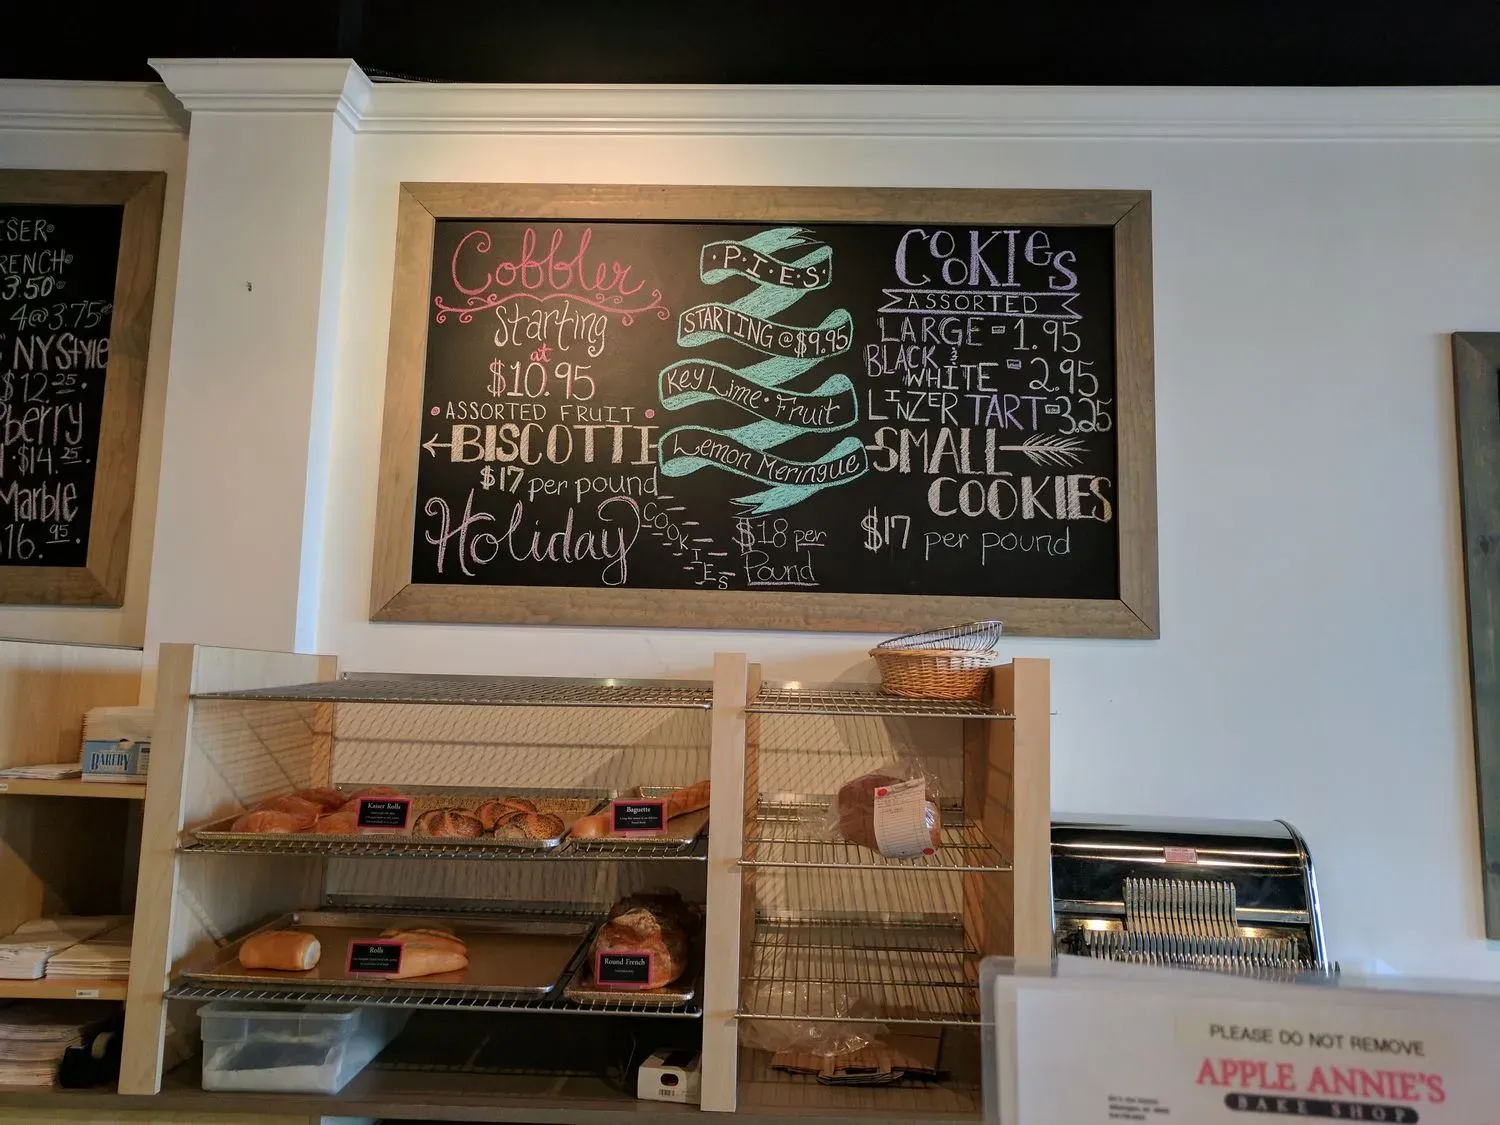 ISER
RENCH
3.50
4@3.75
NY Style
$12.25.
berry
$14.25.
Marble
16.95
Cobbler
Starting
at
$10.95
ASSORTED FRUIT
BISCOTTI
$17 per pound
Holiday
COOKIES
$18 per
Pound
PIES
STARTING @ $9.95
Key Lime • Fruit
Lemon Meringue
COOKIES
ASSORTED
LARGE - 1.95
BLACK &
WHITE - 2.95
LINZER TART - 3.25
SMALL
COOKIES
$17 per pound
BAKERY
Kaiser Rolls
Baguette
Rolls
Round French
PLEASE DO NOT REMOVE
APPLE ANNIE'S
BAKE SHOP